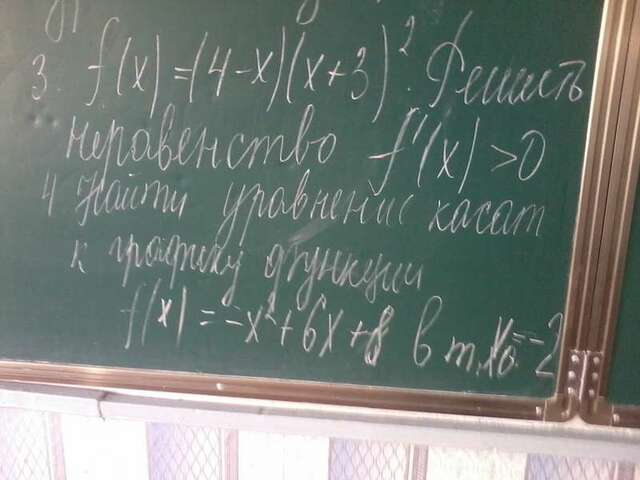 3. f(x) = (4-x)(x+3)². Решить
неравенство f'(x) >0
4 Найти уравнение касат
к графику функции
f(x) = -x²+6x+8 в т. x₀=-2